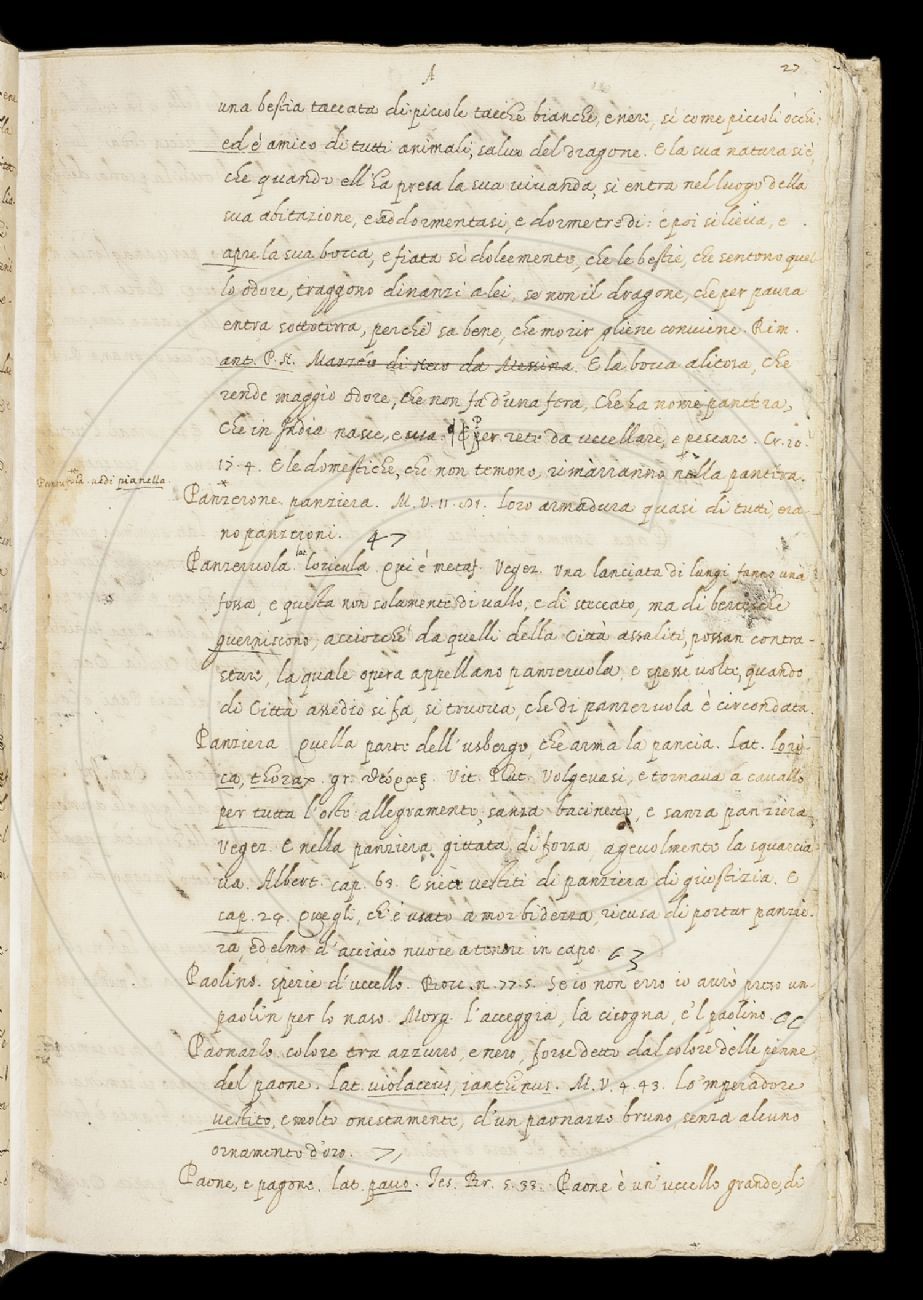 A
27
una bestia taccata di piccole tacche bianche, e nere, sì come piccoli occhi:
ed è amico di tutti animali, salvo del dragone. E la sua natura si è,
che quando ell'ha presa la sua vivanda, si entra nel luogo della
sua abitazione, e addormentasi, e dorme tre dì: e poi si lieva, e
apre la sua bocca, e fiata sì dolcemente, che le bestie, che sentono quel-
lo odore, traggono dinanzi a lei, se non il dragone, che per paura
entra sottoterra, perchè sa bene, che morir gliene conviene. Rim.
ant. P. N. di da Messina. E la bocca aliosa, che
rende maggio odore, che non fa d'una fera, Che ha nome pantera,
Che in India nasce, e usa. per rete da uccellare, e pescare. Cr. 10.
17. 4. E le domestiche, che non temono, rimarranno nella pantera.
vedi pianella.
Panzerone. panziera. M. V. 11. 81. Loro armadura quasi di tutti, era-
no panzeroni. 47
Panzeruola. lat. loricula Qui è metaf. Vegez. Una lanciata di lungi fanno una
fossa, e questa non solamente di vallo, e di steccato, ma di bertesche
guerniscono, acciocchè da quelli della Città assaliti, possan contra-
stare, la quale opera appellano panzeruola, e spesse volte, quando
di Città assedio si fa, si truova, che di panzeruola è circondata.
Panziera Quella parte dell'usbergo, che arma la pancia. Lat. lori-
ca, thorax. gr. θώραξ. Vit. Plut. Volgevasi, e tornava a cavallo
per tutta l'oste allegramente, sanza bacinetto, e sanza panziera.
Vegez. E nella panziera gittata di forza, agevolmente la squarcia-
va. Albert. cap. 63. E siete vestiti di panziera di giustizia. E
cap. 29. Quegli, ch'è usato a morbidezza, ricusa di portar panzie-
ra, ed elmo d'acciaio nuoce a tenere in capo. 63
Paolino. spezie d'uccello. Bocc. n. 77. 5. Se io non erro io avrò preso un
paolin per lo naso. Morg. l'acceggia, la cicogna, e 'l paolino.
Paonazzo. colore tra azzurro, e nero, forse detto dal colore delle penne
del paone. Lat. violaceus, ianthinus. M. V. 4. 43. Lo 'mperadore
vestito, e molto onestamente, d'un paonazzo bruno, senza alcuno
ornamento d'oro.
Paone, e pagone. lat. pavo. Tes. Br. 5. 33. Paone è un uccello grande, di